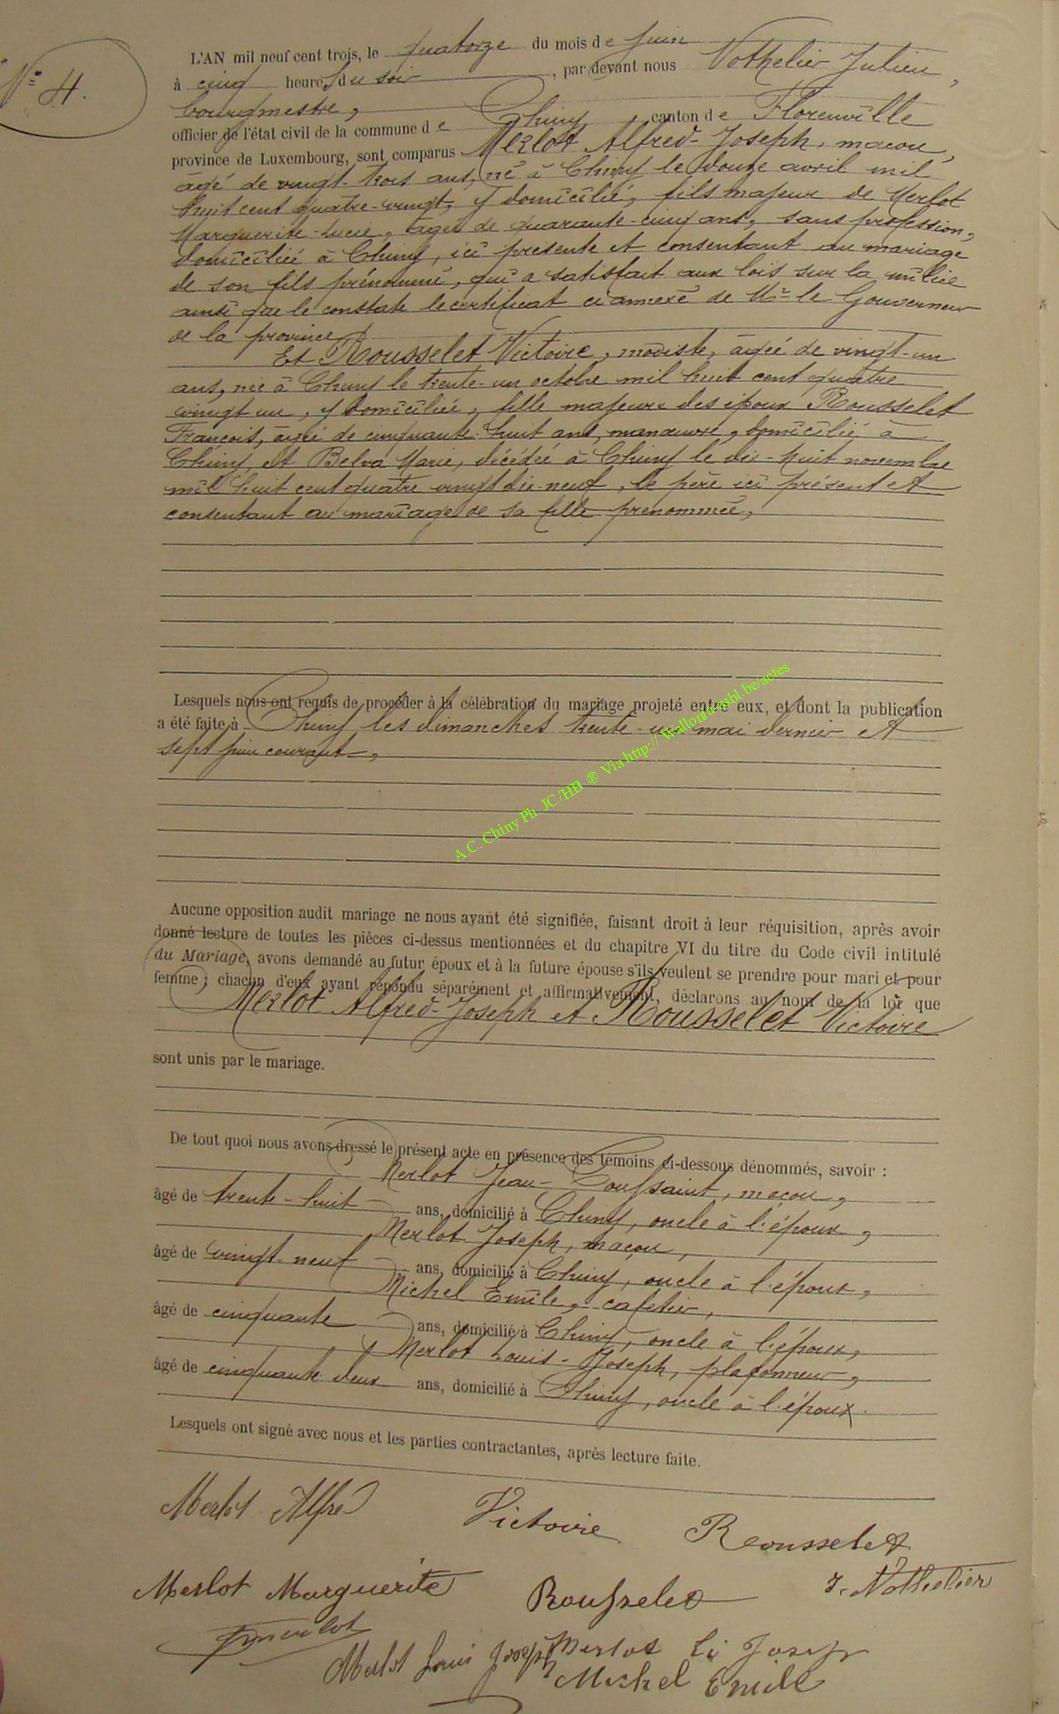 N° 4.
L'AN mil neuf cent trois, le quatorze du mois de juin
à cinq heures du soir, par devant nous Nothelier Julien,
bourgmestre,
officier de l'état civil de la commune de Chiny canton de Florenville
province de Luxembourg, sont comparus Merlot Alfred-Joseph, maçon,
âgé de vingt-trois ans, né à Chiny le douze avril mil
huit cent quatre-vingt, y domicilié, fils majeur de Merlot
Marguerite-Lucie, âgée de quarante-cinq ans, sans profession,
domiciliée à Chiny, ici présente et consentant au mariage
de son fils prénommé, qui a satisfait aux lois sur la milice
ainsi que le constate le certificat ci annexé de Mr le Gouverneur
de la province
Et Rousselet Victoire, modiste, âgée de vingt-un
ans, née à Chiny le trente-un octobre mil huit cent quatre
vingt un, y domiciliée, fille majeure des époux Rousselet
François, âgé de cinquante-huit ans, manœuvre, domicilié à
Chiny, et Belva Marie, décédée à Chiny le dix-huit novembre
mil huit cent quatre vingt dix-neuf, le père ici présent et
consentant au mariage de sa fille prénommée,
Lesquels nous ont requis de procéder à la célébration du mariage projeté entre eux, et dont la publication
a été faite à Chiny les dimanches trente-un mai dernier et
sept juin courant,
A.C. Chiny Ph JC/HB ® Via http:// Wallonia asbl.be/actes
Aucune opposition audit mariage ne nous ayant été signifiée, faisant droit à leur réquisition, après avoir
donné lecture de toutes les pièces ci-dessus mentionnées et du chapitre VI du titre du Code civil intitulé
du Mariage, avons demandé au futur époux et à la future épouse s'ils veulent se prendre pour mari et pour
femme ; chacun d'eux ayant répondu séparément et affirmativement, déclarons au nom de la loi que
Merlot Alfred-Joseph et Rousselet Victoire
sont unis par le mariage.
De tout quoi nous avons dressé le présent acte en présence des témoins ci-dessous dénommés, savoir :
Merlot Jean-Toussaint, maçon,
âgé de trente-huit ans, domicilié à Chiny, oncle à l'époux,
Merlot Joseph, maçon,
âgé de vingt neuf ans, domicilié à Chiny, oncle à l'époux,
Michel Emile, cafetier,
âgé de cinquante ans, domicilié à Chiny, oncle à l'époux,
Merlot Louis-Joseph, plafonneur,
âgé de cinquante deux ans, domicilié à Chiny, oncle à l'époux.
Lesquels ont signé avec nous et les parties contractantes, après lecture faite.
Merlot Alfred Victoire Rousselet
Merlot Marguerite Rousselet J. Nothelier
Merlot Louis Joseph Merlot Joseph
Michel Emile